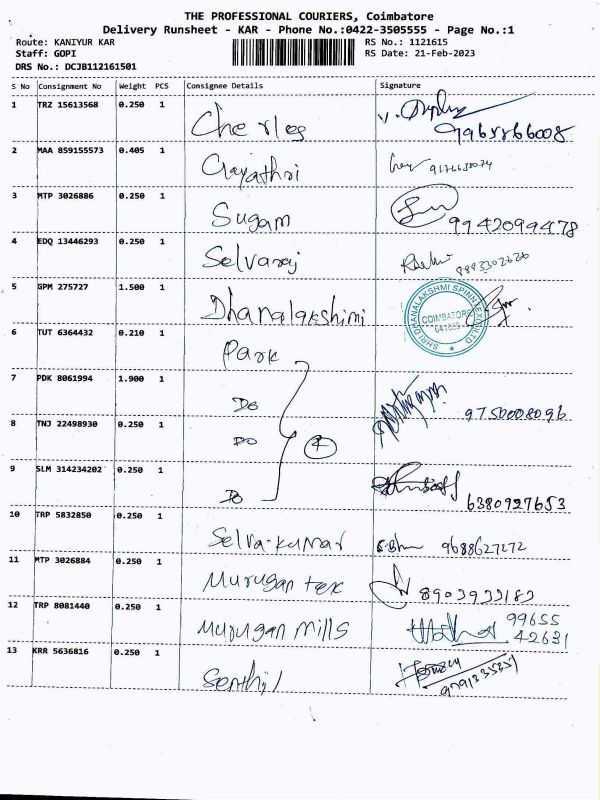 THE PROFESSIONAL COURIERS, Coimbatore
Delivery Runsheet - KAR - Phone No.:0422-3505555 - Page No.:1
Route: KANIYUR KAR RS No.: 1121615
Staff: GOPI RS Date: 21-Feb-2023
DRS No.: DCJB112161501
S No Consignment No Weight PCS Consignee Details Signature
1 TRZ 15613568 0.250 1 Cherles
2 MAA 859155573 0.405 1 Gayathri
3 MTP 3026886 0.250 1 Sugam 9942099478
4 EDQ 13446293 0.250 1 Selvaraj
5 GPM 275727 1.500 1 Dhanalakshimi
SHRI DHANALAKSHMI SPINNTEX (P) LTD
COIMBATORE
641659
6 TUT 6364432 0.210 1 Park
7 PDK 8061994 1.900 1 Do 9750008096
8 TNJ 22498930 0.250 1 Do 4
9 SLM 314234202 0.250 1 Do 6380927653
10 TRP 5832850 0.250 1 Selva-kumar 9688627272
11 MTP 3026884 0.250 1 Murugan tex 8903933183
12 TRP 8081440 0.250 1 Murugan Mills 99655
42631
13 KRR 5636816 0.250 1 Senthil